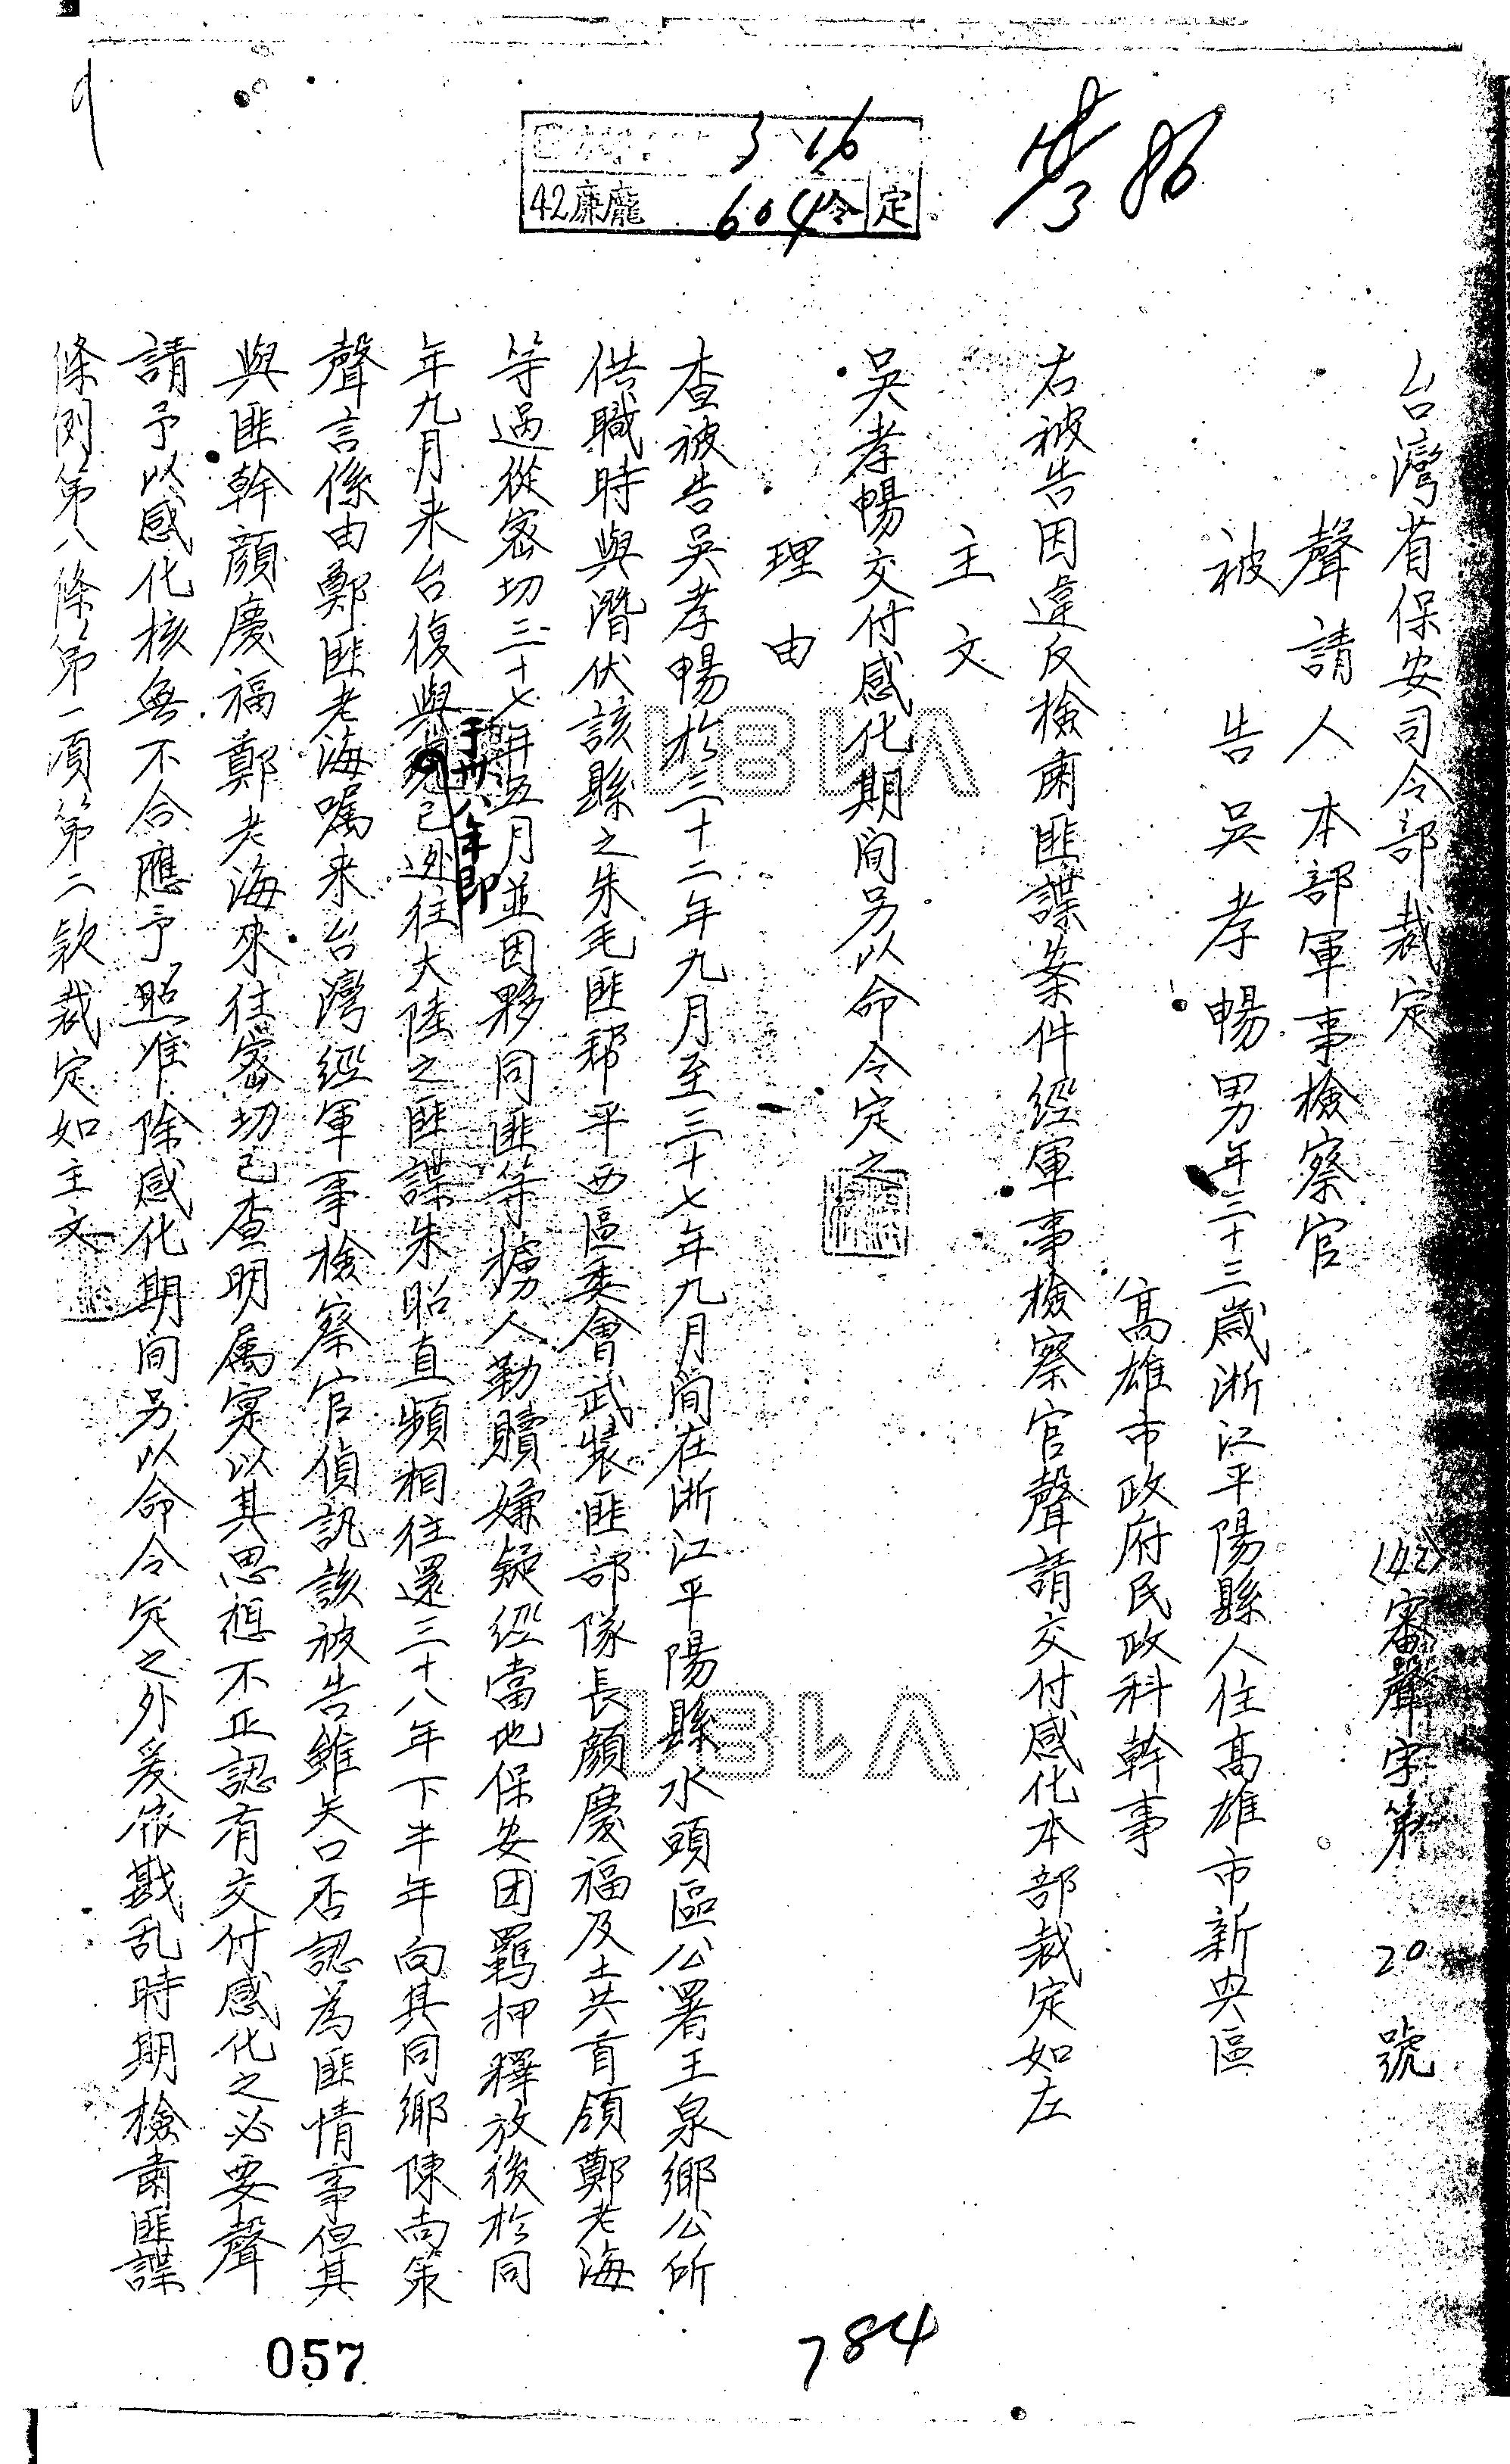 台灣省保安司令部裁定
(42)審聲字第20號
聲請人本部軍事檢察官
被告吳孝暢男年三十三歲浙江平陽縣人住高雄市新央區
高雄市政府民政科幹事
右被告因違反檢肅匪諜案件經軍事檢察官聲請交付感化本部裁定如左
主文
吳孝暢交付感化期间另以命令定之
理由
查被告吳孝暢於三十二年九月至三十七年九月間在浙江平陽縣水頭區公署王泉鄉公所
供職時與潛伏該縣之朱毛匪幫平西區委會武裝匪部隊長顏慶福及土共首領鄭老海
等過從密切三十七年五月並因夥同匪等擄人勒贖嫌疑經當地保安团羈押釋放後於同
年九月来台復與于卅八年即已逃往大陸之匪諜朱昭直頻相往還三十八年下半年向其同鄉陳尚策
聲言係由鄭匪老海嘱来台灣經軍事檢察官偵訊該被告雖矢口否認為匪情事但其
與匪幹顏慶福鄭老海來往密切已查明属实以其思想不正認有交付感化之必要聲
請予以感化核無不合應予照准除感化期间另以命令定之外爰依戡乱時期檢肅匪諜
條例第八條第一項第二欵裁定如主文
3 16
42廉龐 604令定
86
784
057
V181
V181